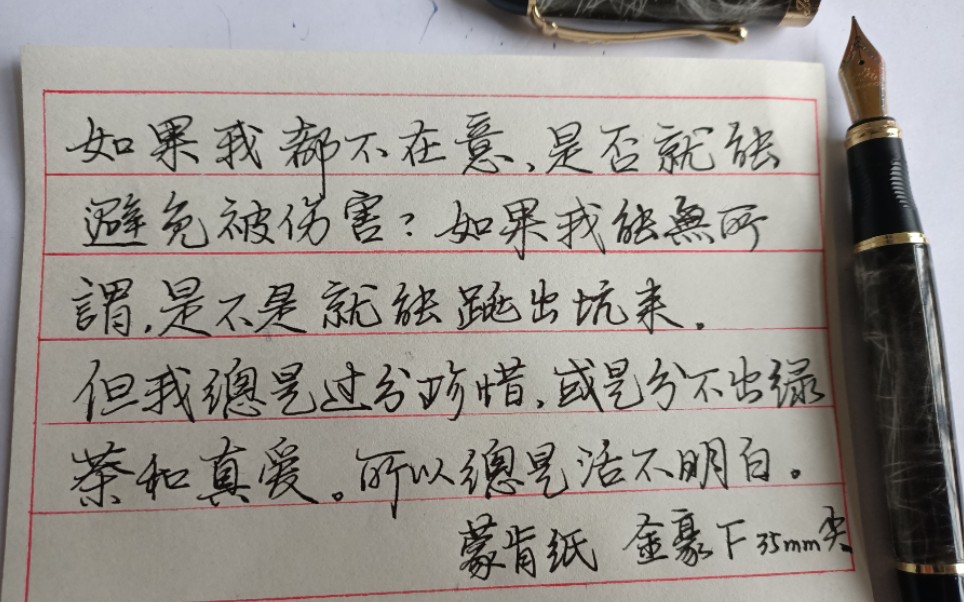 如果我都不在意、是否就能
避免被伤害?如果我能無所
謂,是不是就能跳出坑来.
但我總是过分珍惜,或是分不出绿
茶和真爱。所以總是活不明白。
蒙肯纸 金豪下35mm尖